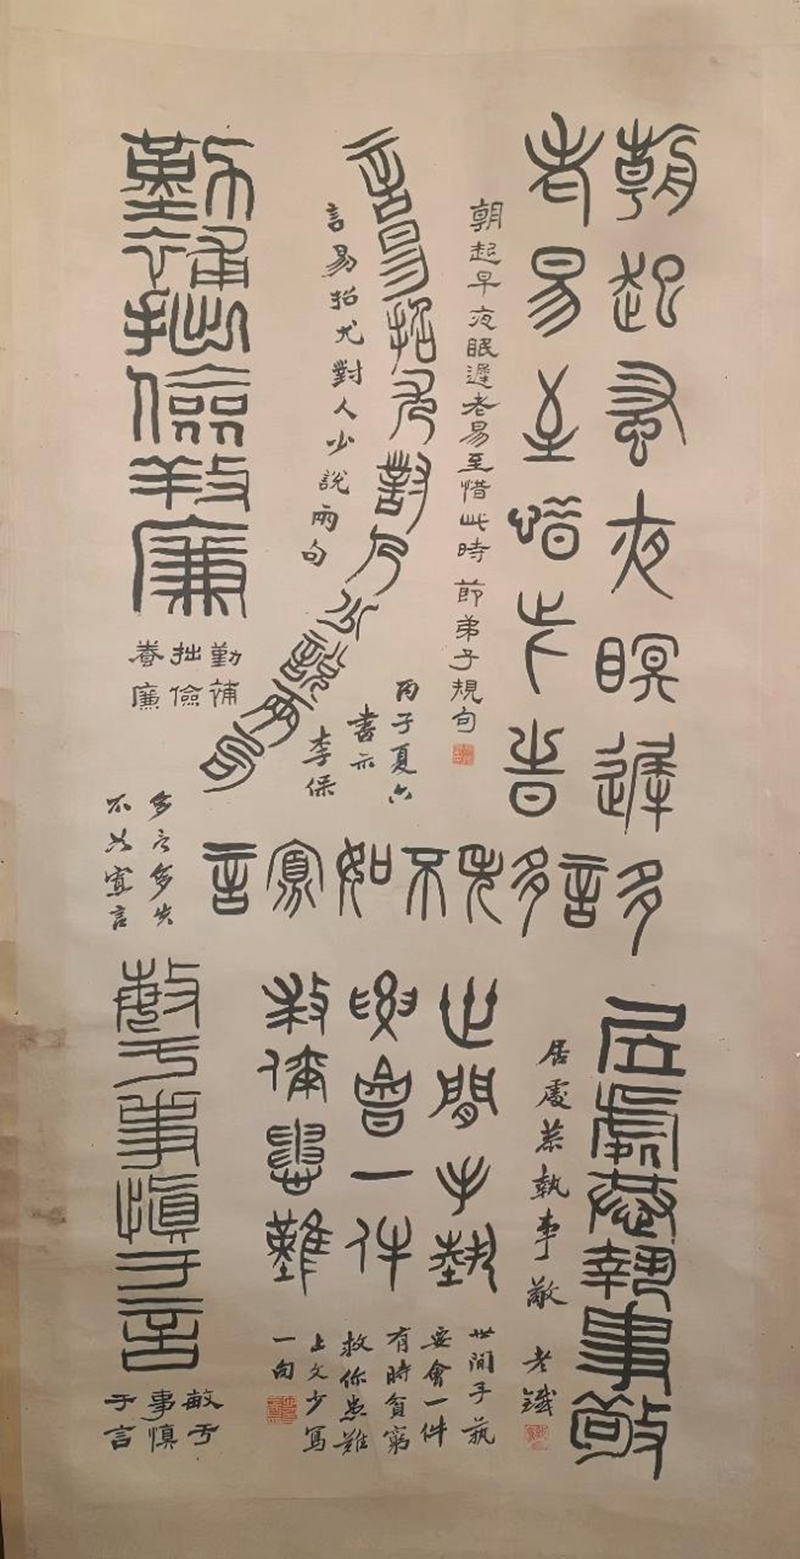 朝起早夜眠遲
老易至惜此時
朝起早夜眠遲老易至惜此時 節弟子規句
言易招尤對人少說兩句
言易招尤對人少說兩句
丙子夏六
書示
李保
勤補拙儉養廉
勤補
拙儉
養廉
多言多失不如寡言
多言多失
不如寡言
居處恭執事敬
居處恭執事敬 老鐵
世間手藝
要會一件
救你患難
世間手藝
要會一件
有時貧窮
救你患難
上文少寫
一句
敏于事慎于言
敏于
事慎
于言